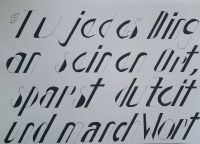 Tu jedes Ding
an seinen Ort,
sparst du Zeit
und manch Wort